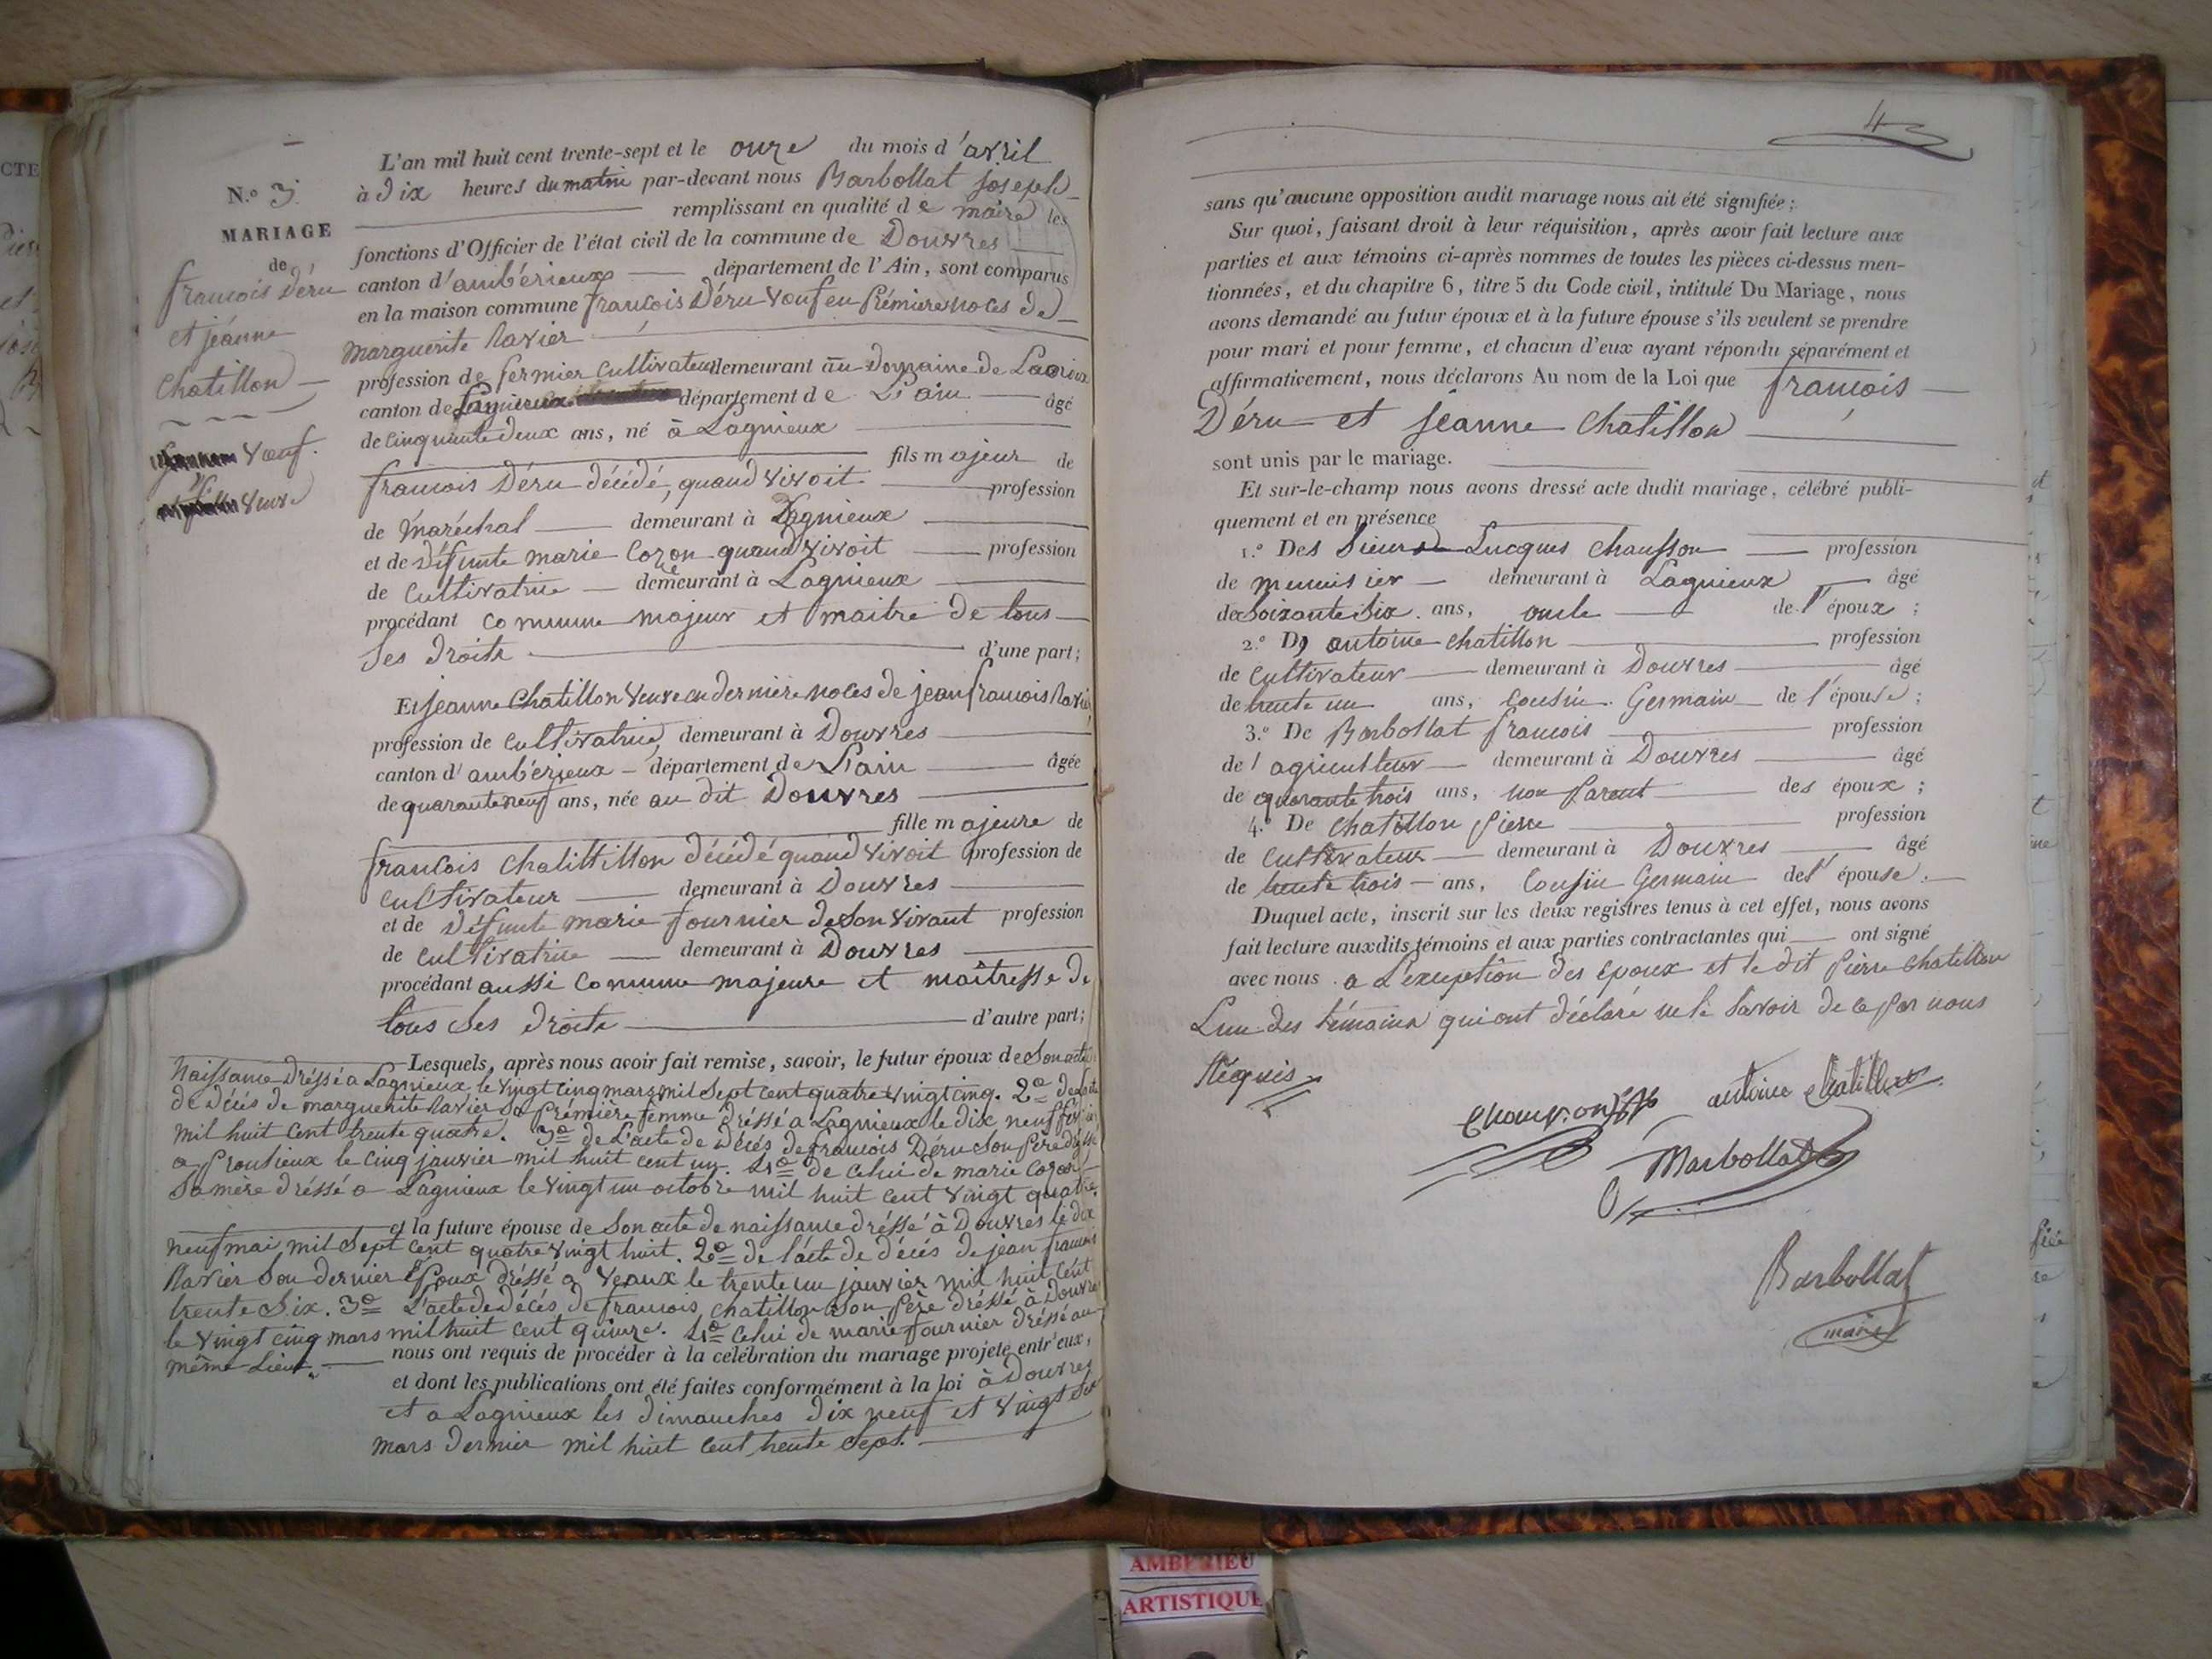 N.o 3.
MARIAGE
de
françois Déru
et jéanne
chatillon
veuf.
veuve
L'an mil huit cent trente-sept et le onze du mois d'avril
à dix heures du matin par-devant nous Barbollat joseph
remplissant en qualité de maire les
fonctions d'Officier de l'état civil de la commune de Douvres
canton d'ambérieux département de l'Ain, sont comparus
en la maison commune françois Déru veuf en prémière noces de
Marguerite Ravier
profession de fermier cultivateur demeurant au Domaine de
canton de Lagnieux département de L'ain âgé
de cinquante deux ans, né à Lagnieux
fils majeur de
françois Déru décédé, quand vivoit profession
de Maréchal demeurant à Lagnieux
et de défunte marie Cozon quand vivoit profession
de cultivatrice demeurant à Lagnieux
procédant comme majeur et maitre de tous
Ses droits d'une part;
Et jeanne chatillon veuve en dernière noces de jean françois Ravier
profession de cultivatrice, demeurant à Douvres
canton d'ambérieux département de L'ain âgée
de quarante neuf ans, née au dit Douvres
fille majeure de
francois chatittillon décédé quand vivoit profession de
cultivateur demeurant à Douvres
et de défunte marie fournier de Son vivant profession
de cultivatrice demeurant à Douvres
procédant aussi comme majeure et maîtresse de
tous Ses droits d'autre part;
Lesquels, après nous avoir fait remise, savoir, le futur époux de Son acte
Naissance dréssé a Lagnieux le vingt cinq mars mil sept cent quatre vingt cinq. 2o de
de décés de marguerite Ravier Sa prémière femme dréssé a Lagnieux le dix neuf
mil huit cent trente quatre. 3o de L'acte de décés de francois Déru Son père dréssé
a proulieux le cinq janvier mil huit cent un. 4o de celui de marie Cozon
Sa mère dréssé a Lagnieux le vingt un octobre mil huit cent vingt quatre.
et la future épouse de Son acte de naissance dréssé à Douvres le dix
neuf mai mil Sept cent quatre vingt huit. 2o de l'acte de décés de jean francois
Ravier Son dernier Epoux dréssé a veaux le trente un janvier mil huit cent
trente Six. 3o L'acte de décés de francois chatillon Son père dréssé à Douvres
le vingt cinq mars mil huit cent quinze. 4o celui de marie fournier dréssé au
même Lieu. nous ont requis de procéder à la célébration du mariage projeté entr'eux,
et dont les publications ont été faites conformément à la loi à Douvres
et a Lagnieux les dimanches dix neuf et vingt six
mars dernier mil huit cent trente Sept.
4
sans qu'aucune opposition audit mariage nous ait été signifiée;
Sur quoi, faisant droit à leur réquisition, après avoir fait lecture aux
parties et aux témoins ci-après nommés de toutes les pièces ci-dessus men-
tionnées, et du chapitre 6, titre 5 du Code civil, intitulé Du Mariage, nous
avons demandé au futur époux et à la future épouse s'ils veulent se prendre
pour mari et pour femme, et chacun d'eux ayant répondu séparément et
affirmativement, nous déclarons Au nom de la Loi que francois
Déru et jéanne chatillon
sont unis par le mariage.
Et sur-le-champ nous avons dressé acte dudit mariage, célébré publi-
quement et en présence
1.o Des Sieurs Lucques Chausson profession
de menuisier demeurant à Lagnieux âgé
de Soixante Six ans, oncle de l'époux;
2.o D antoine chatillon profession
de cultivateur demeurant à Douvres âgé
de trente un ans, Cousin Germain de l'épouse;
3.o De Barbollat francois profession
de l'agriculteur demeurant à Douvres âgé
de quarante trois ans, non parent des époux;
4.o De chatillon pierre profession
de cultivateur demeurant à Douvres âgé
de trente trois ans, Cousin Germain del' épouse.
Duquel acte, inscrit sur les deux registres tenus à cet effet, nous avons
fait lecture auxdits témoins et aux parties contractantes qui ont signé
avec nous a L'exception des époux et le dit Pierre chatillon
L'un des témoins qui ont déclaré ne le Savoir de ce par nous
Réquis
antoine chatillon
Barbollat
Barbollat
maire
AMBERIEU
ARTISTIQUE